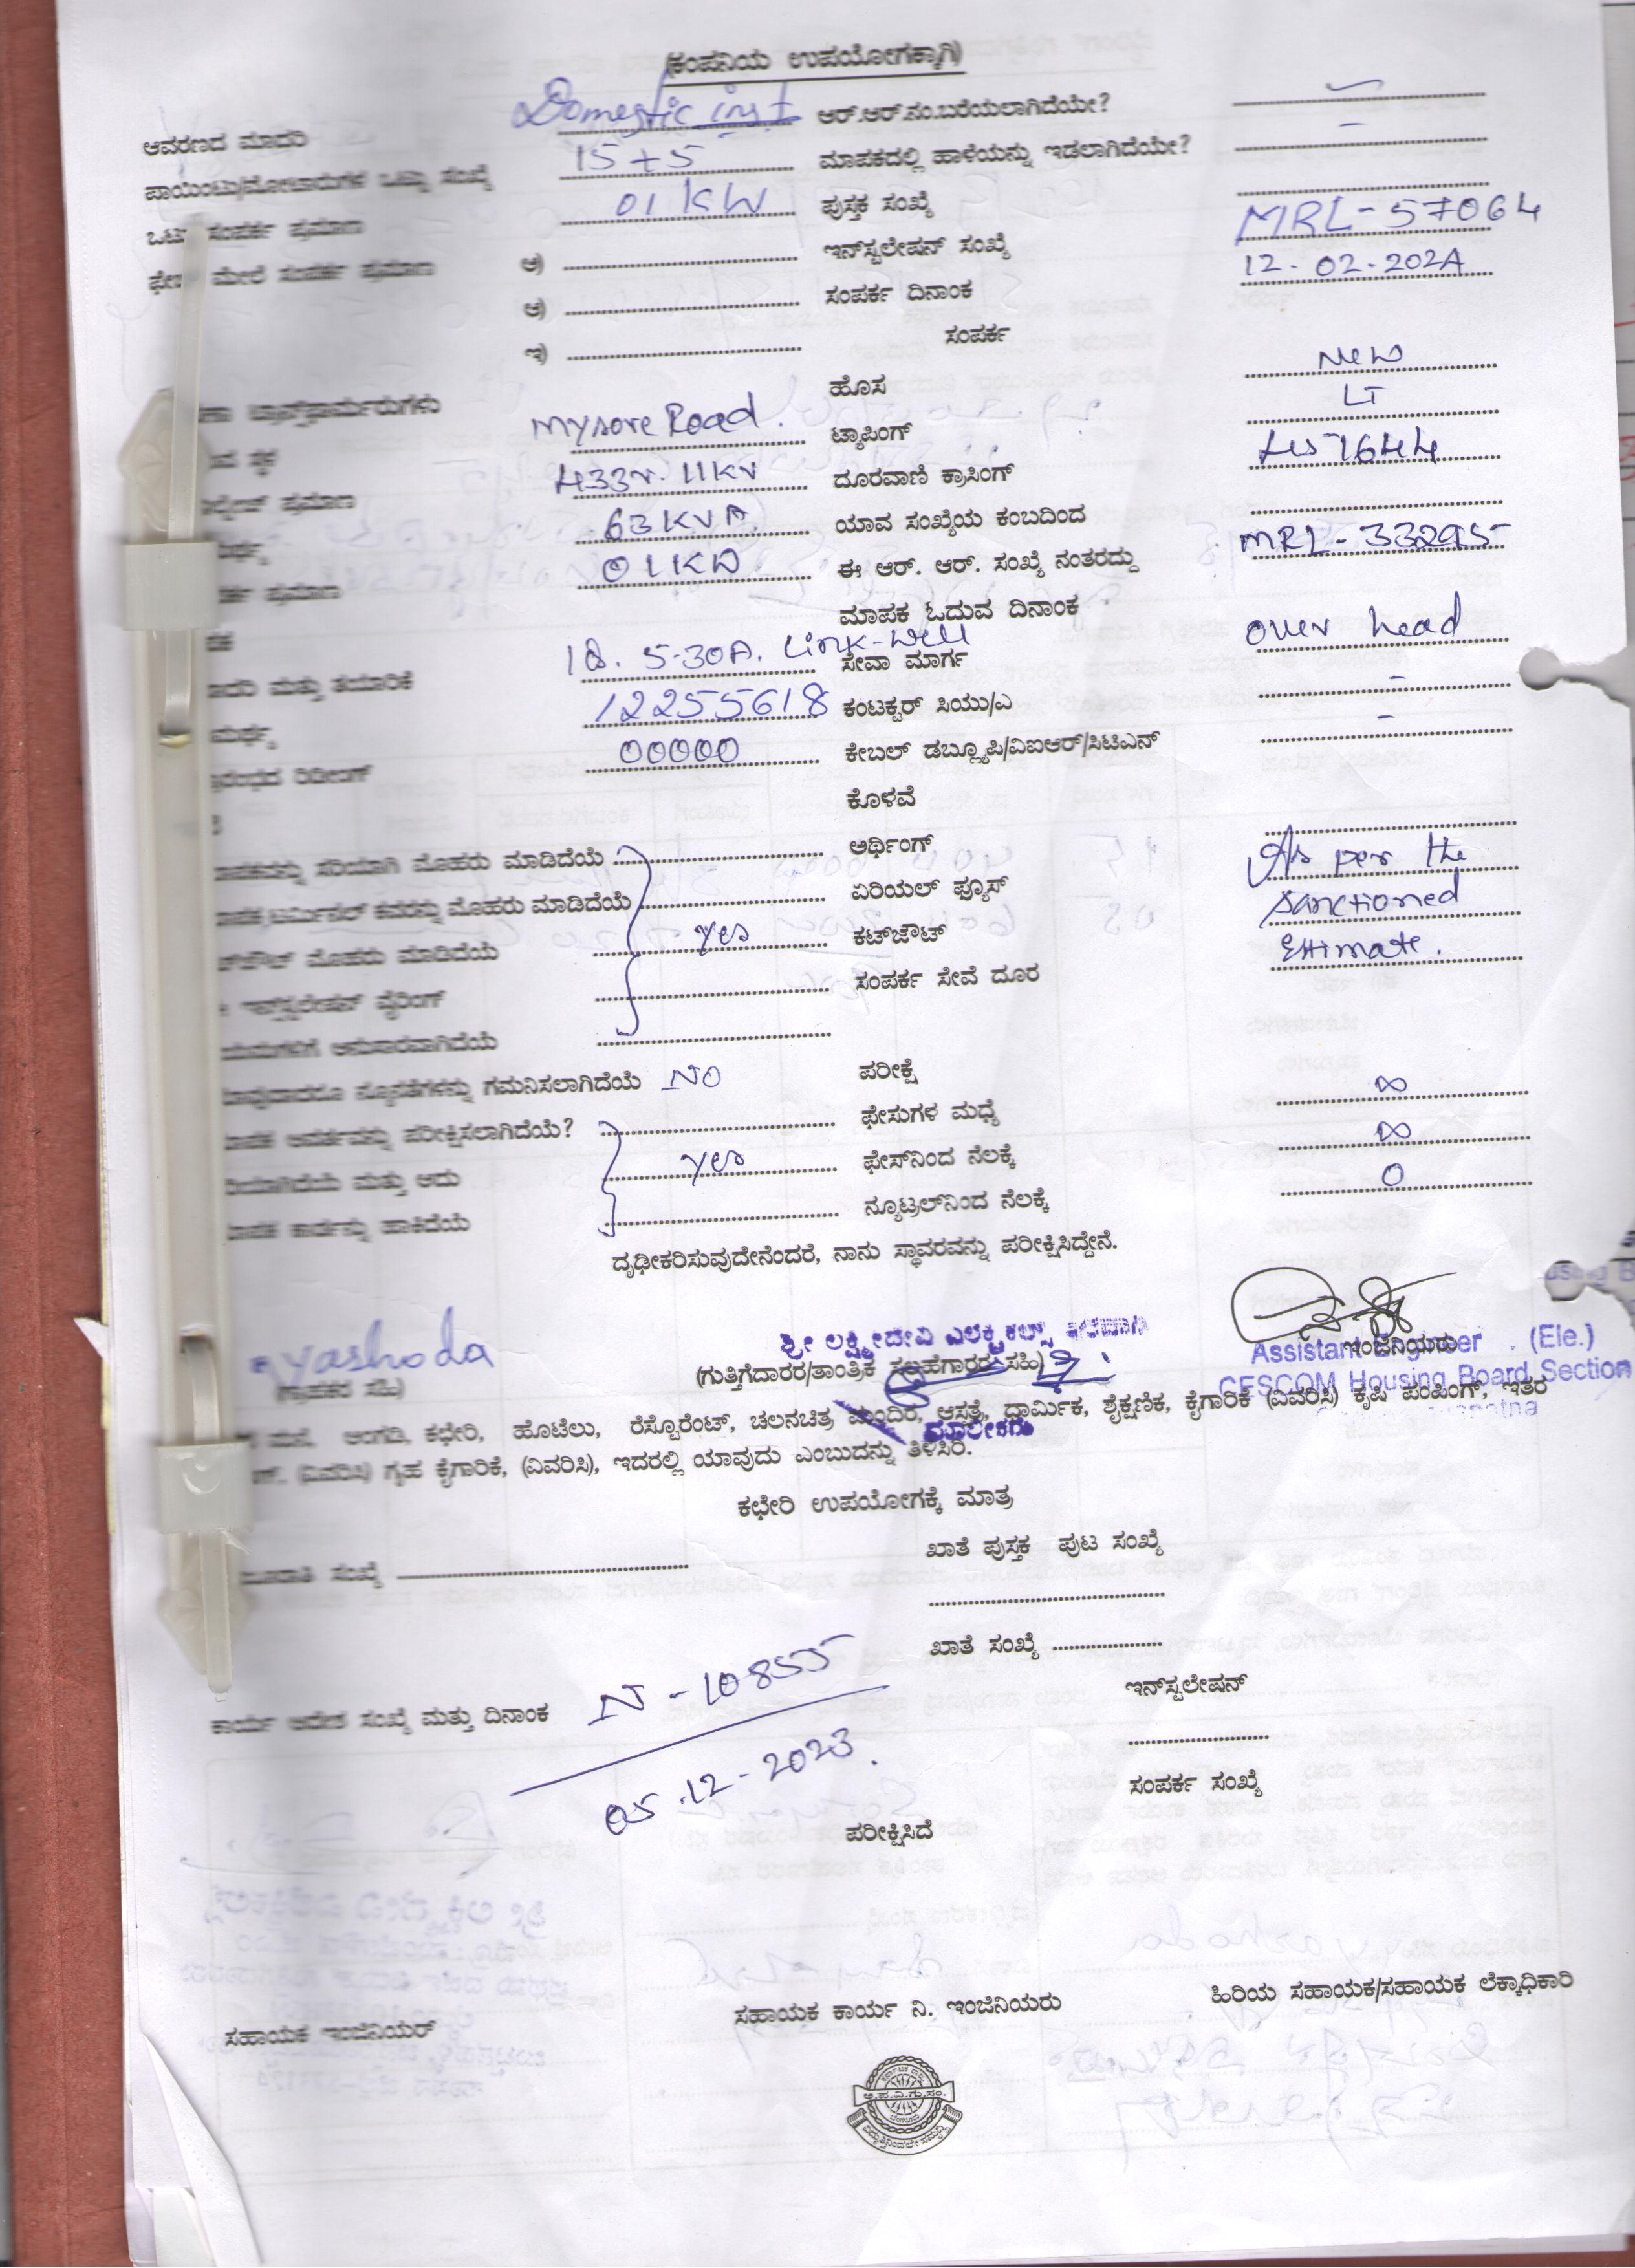 (ಕಂಪನಿಯ ಉಪಯೋಗಕ್ಕಾಗಿ)
ಆವರಣದ ಮಾದರಿ Domestic inst ಆರ್.ಆರ್.ನಂ.ಬರೆಯಲಾಗಿದೆಯೇ? -
ಪಾಯಿಂಟು/ಮೋಟಾರುಗಳ ಒಟ್ಟು ಸಂಖ್ಯೆ 15+5 ಮಾಪಕದಲ್ಲಿ ಹಾಳೆಯನ್ನು ಇಡಲಾಗಿದೆಯೇ? -
ಒಟ್ಟು ಸಂಪರ್ಕ ಪ್ರಮಾಣ 01 KW ಪುಸ್ತಕ ಸಂಖ್ಯೆ
ಮೇಲೆ ಸಂಪರ್ಕ ಪ್ರಮಾಣ ಅ) ಇನ್‌ಸ್ಟಲೇಷನ್ ಸಂಖ್ಯೆ MRL-57064
ಆ) ಸಂಪರ್ಕ ದಿನಾಂಕ 12-02-2024
ಇ) ಸಂಪರ್ಕ
ಟ್ರಾನ್ಸ್‌ಫಾರ್ಮರುಗಳು ಹೊಸ New
ಸ್ಥಳ Mysore Road. ಟ್ಯಾಪಿಂಗ್ LT
ಪ್ರಮಾಣ 433v. 11KV ದೂರವಾಣಿ ಕ್ರಾಸಿಂಗ್
63 KVA ಯಾವ ಸಂಖ್ಯೆಯ ಕಂಬದಿಂದ
ಪ್ರಮಾಣ 01KW ಈ ಆರ್. ಆರ್. ಸಂಖ್ಯೆ ನಂತರದ್ದು MRL-33295
ಮಾಪಕ ಓದುವ ದಿನಾಂಕ
ಮತ್ತು ತಯಾರಿಕೆ 5-30A. Link-Well ಸೇವಾ ಮಾರ್ಗ over head
12255618 ಕಂಟಕ್ಟರ್ ಸಿಯು/ಎ -
ರಿಡೀಂಗ್ 00000 ಕೇಬಲ್ ಡಬ್ಲ್ಯೂಪಿ/ವಿಐಆರ್/ಸಿಟಿಎನ್ -
ಕೊಳವೆ
ಸರಿಯಾಗಿ ಮೊಹರು ಮಾಡಿದೆಯೆ ಅರ್ಥಿಂಗ್ As per the
ಟರ್ಮಿನಲ್ ಕವರನ್ನು ಮೊಹರು ಮಾಡಿದೆಯೆ ಏರಿಯಲ್ ಫ್ಯೂಸ್ sanctioned
ಮೊಹರು ಮಾಡಿದೆಯೆ yes ಕಟ್‌ಜೌಟ್ Estimate.
ಇನ್ಸ್‌ಟಲೇಷನ್ ವೈರಿಂಗ್ ಸಂಪರ್ಕ ಸೇವೆ ದೂರ
ಅನುಸಾರವಾಗಿದೆಯೆ
ನ್ಯೂನತೆಗಳನ್ನು ಗಮನಿಸಲಾಗಿದೆಯೆ NO ಪರೀಕ್ಷೆ
ಪರೀಕ್ಷಿಸಲಾಗಿದೆಯೆ? ಫೇಸುಗಳ ಮಧ್ಯೆ ∞
ಮತ್ತು ಅದು yes ಫೇಸ್‌ನಿಂದ ನೆಲಕ್ಕೆ ∞
ಕಾರ್ಡನ್ನು ಹಾಕಿದೆಯೆ ನ್ಯೂಟ್ರಲ್‌ನಿಂದ ನೆಲಕ್ಕೆ 0
ದೃಢೀಕರಿಸುವುದೇನೆಂದರೆ, ನಾನು ಸ್ಥಾವರವನ್ನು ಪರೀಕ್ಷಿಸಿದ್ದೇನೆ.
yashoda ಶ್ರೀ ಲಕ್ಷ್ಮೀದೇವಿ ಎಲೆಕ್ಟ್ರಿಕಲ್ಸ್
(ಗ್ರಾಹಕರ ಸಹಿ) (ಗುತ್ತಿಗೆದಾರರ/ತಾಂತ್ರಿಕ ಸಲಹೆಗಾರರ ಸಹಿ) ಇಂಜಿನಿಯರು
Assistant Engineer (Ele.)
CESCOM Housing Board Section
ಮಾಲೀಕರು
ಮನೆ, ಅಂಗಡಿ, ಕಛೇರಿ, ಹೊಟೆಲು, ರೆಸ್ಟೊರೆಂಟ್, ಚಲನಚಿತ್ರ ಮಂದಿರ, ಆಸ್ಪತ್ರೆ, ಧಾರ್ಮಿಕ, ಶೈಕ್ಷಣಿಕ, ಕೈಗಾರಿಕೆ (ವಿವರಿಸಿ) ಕೃಷಿ ಪಂಪಿಂಗ್, ಇತರ
(ವಿವರಿಸಿ) ಗೃಹ ಕೈಗಾರಿಕೆ, (ವಿವರಿಸಿ), ಇದರಲ್ಲಿ ಯಾವುದು ಎಂಬುದನ್ನು ತಿಳಿಸಿರಿ.
ಕಛೇರಿ ಉಪಯೋಗಕ್ಕೆ ಮಾತ್ರ
ಸಂಖ್ಯೆ ಖಾತೆ ಪುಸ್ತಕ ಪುಟ ಸಂಖ್ಯೆ
ಖಾತೆ ಸಂಖ್ಯೆ
ಕಾರ್ಯ ಆದೇಶ ಸಂಖ್ಯೆ ಮತ್ತು ದಿನಾಂಕ N-10855 ಇನ್‌ಸ್ಟಲೇಷನ್
05.12-2023. ಸಂಪರ್ಕ ಸಂಖ್ಯೆ
ಪರೀಕ್ಷಿಸಿದೆ
ಸಹಾಯಕ ಇಂಜಿನಿಯರ್ ಸಹಾಯಕ ಕಾರ್ಯ ನಿ. ಇಂಜಿನಿಯರು ಹಿರಿಯ ಸಹಾಯಕ/ಸಹಾಯಕ ಲೆಕ್ಕಾಧಿಕಾರಿ